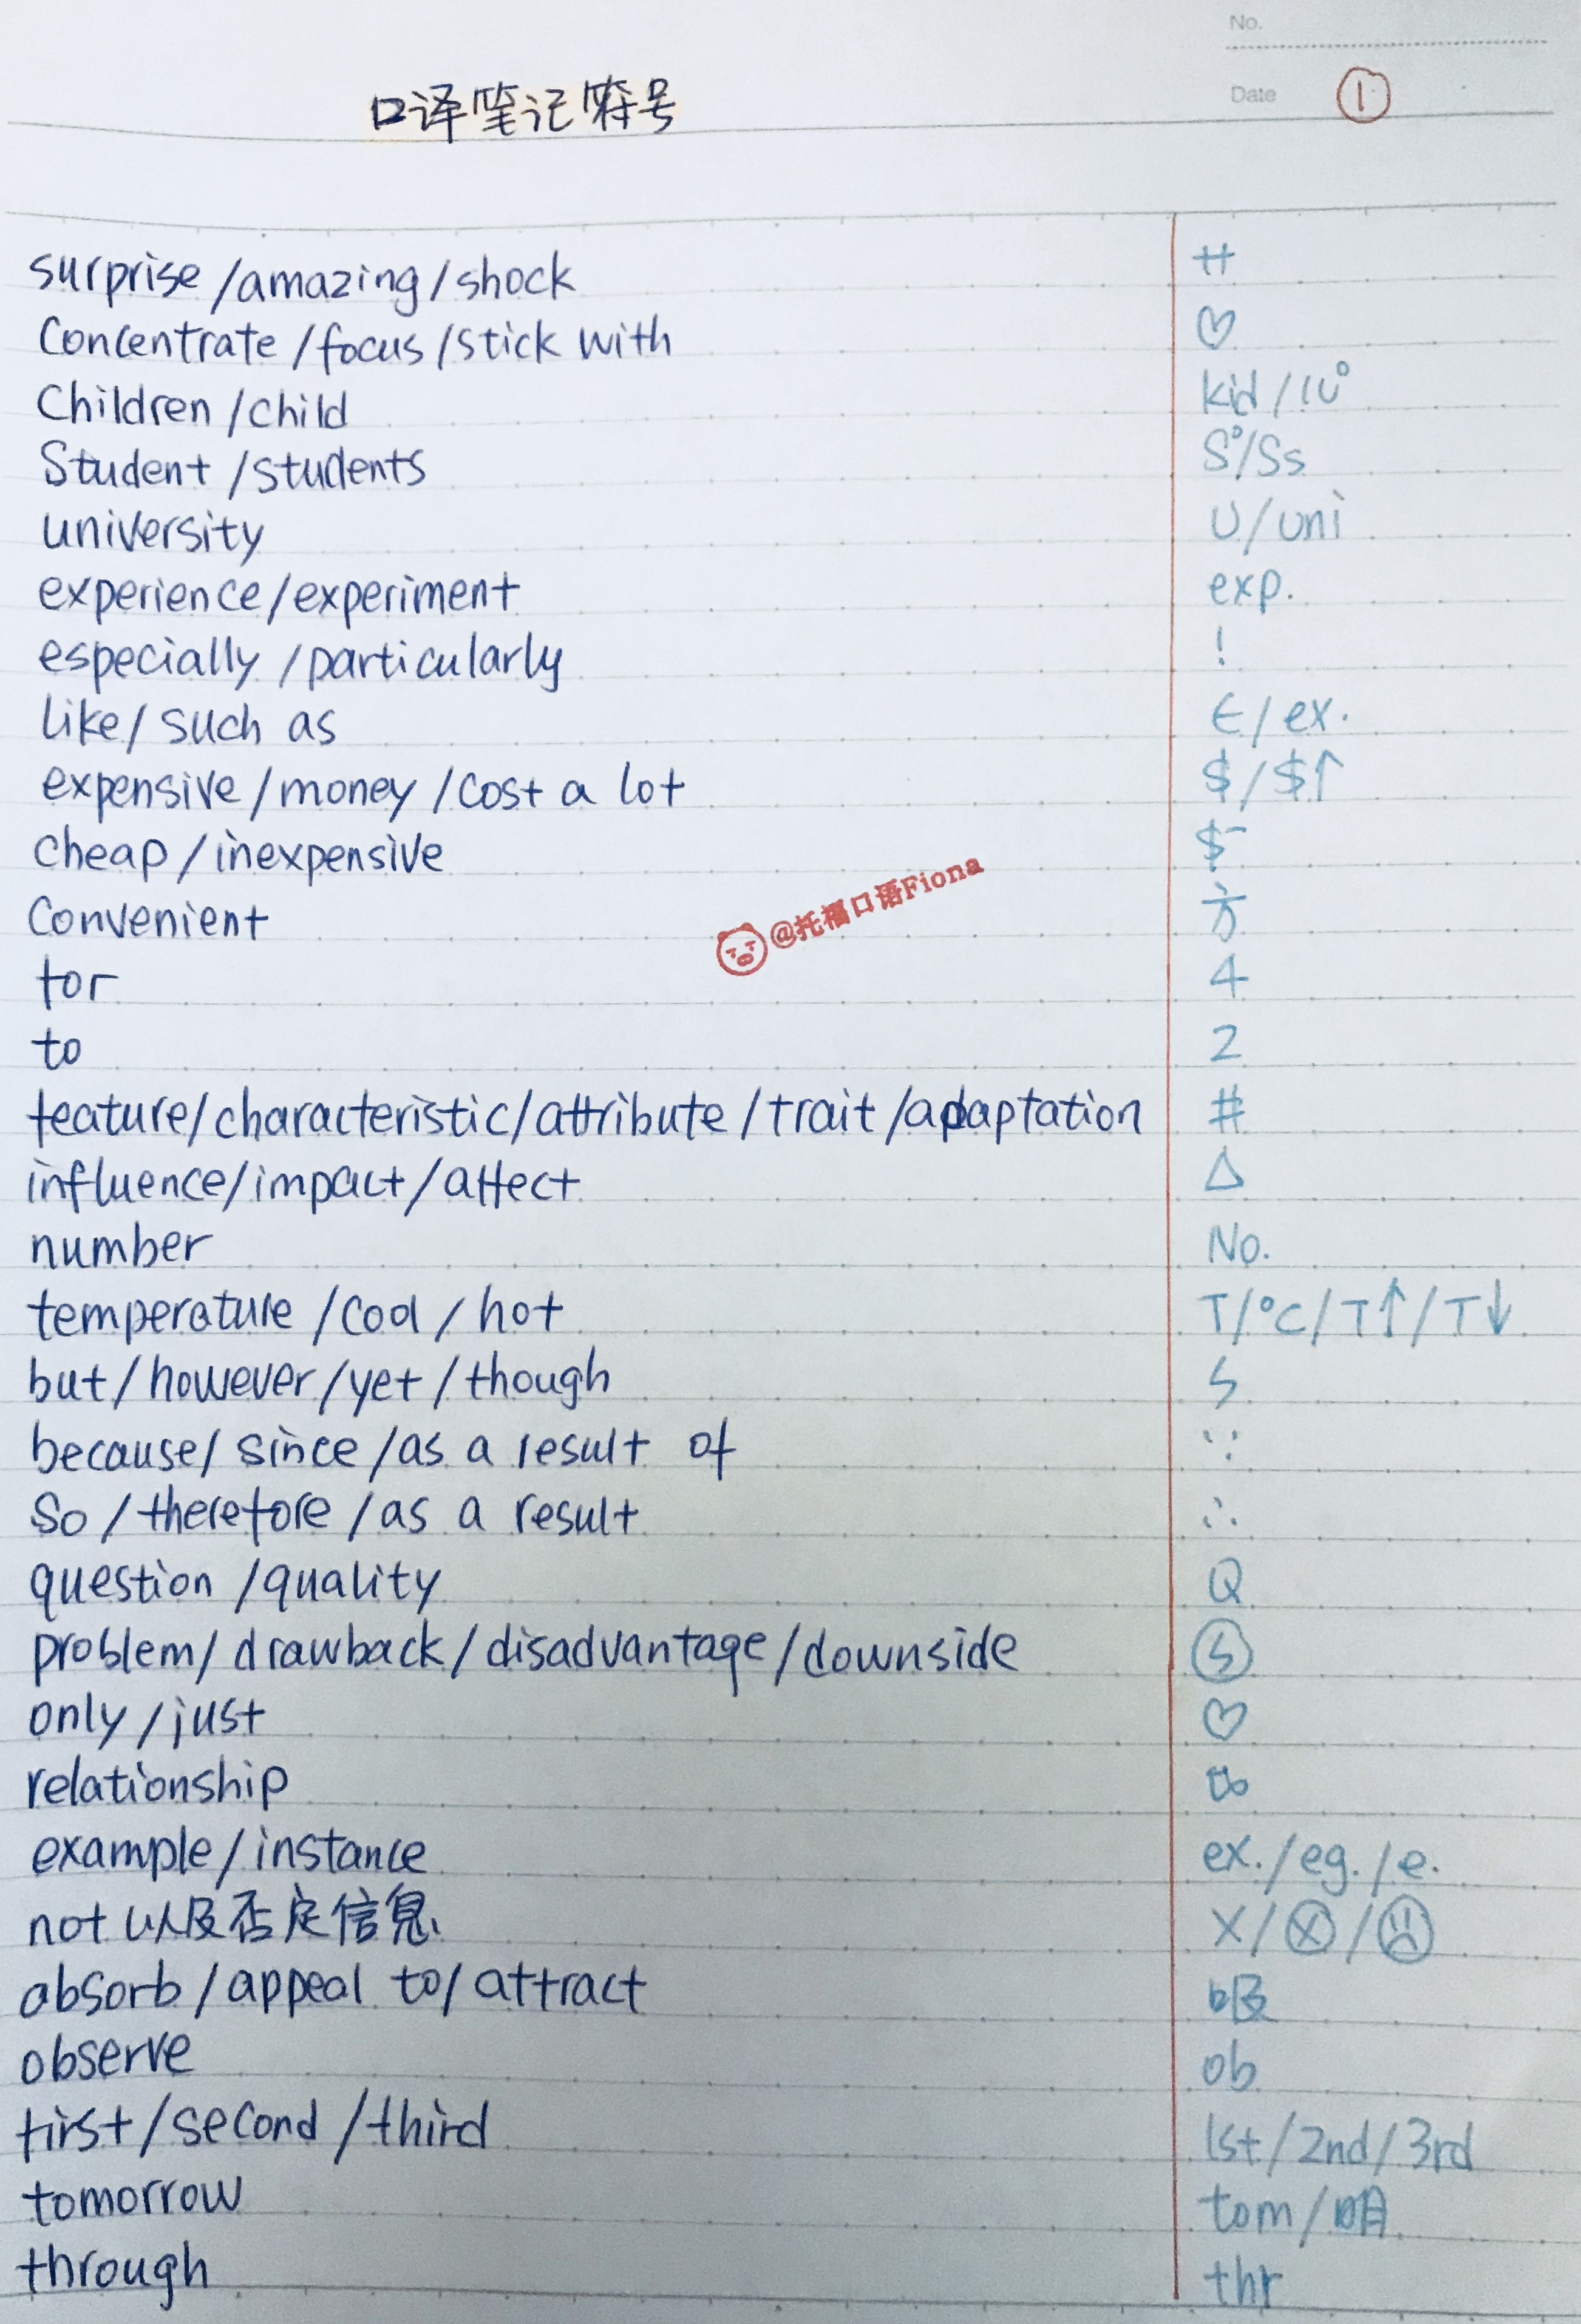 No.
Date ①
口译笔记符号
surprise/amazing/shock 艹
Concentrate/focus/stick with ♡
Children/child kid/
Student/students S°/Ss
university U/uni
experience/experiment exp.
especially/particularly !
like/such as ∈/ex.
expensive/money/cost a lot $/$↑
cheap/inexpensive $⁻
Convenient 方
for 4
to 2
feature/characteristic/attribute/trait/adaptation #
influence/impact/affect △
number No.
temperature/cool/hot T/°C/T↑/T↓
but/however/yet/though
because/since/as a result of ∵
So/therefore/as a result ∴
question/quality Q
problem/drawback/disadvantage/downside
only/just ♡
relationship
example/instance ex./eg./e.
not以及否定信息 X/ⓧ/☹
absorb/appeal to/attract 吸
observe ob
first/second/third 1st/2nd/3rd
tomorrow tom/明
through thr
@托福口语Fiona